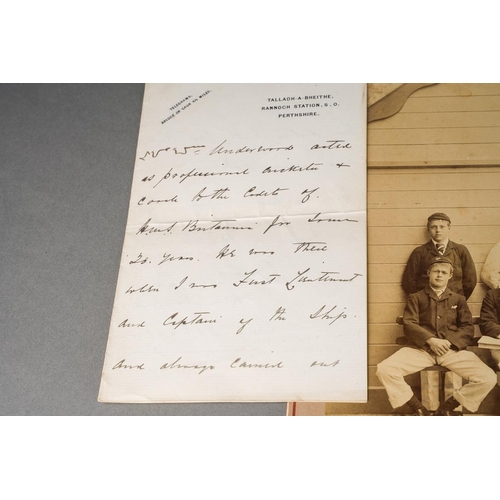 TELEGRAMS:
BRIDGE OF GAUR
TALLADH-A-BHEITHE,
RANNOCH STATION, S.O.
PERTHSHIRE.
Underwood acted
as professional cricketer &
coach to the Cadets of
H.M.S Britannia for some
20. years. He was there
when I was First Lieutenant
and Captain of the Ship.
and always carried out